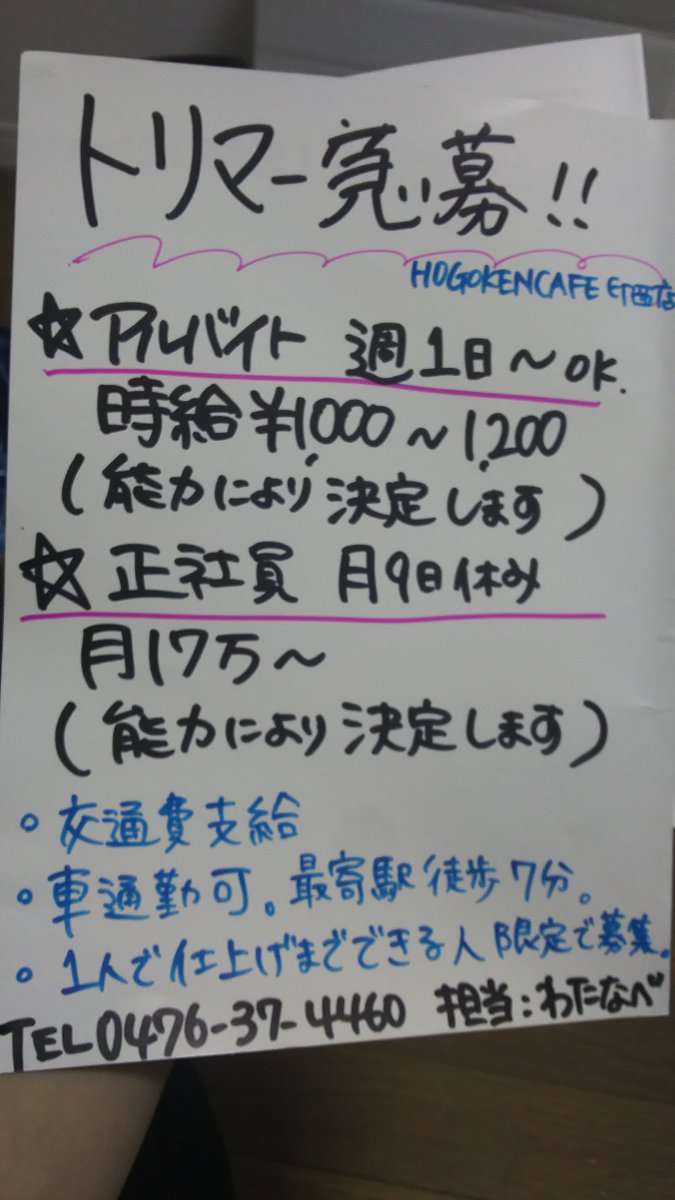 トリマー急募!!
HOGOKENCAFE 印西店
☆アルバイト 週1日~OK.
時給¥1,000~1,200
(能力により決定します)
☆正社員 月9日休み
月17万~
(能力により決定します)
◦交通費支給
◦車通勤可。最寄駅徒歩7分。
◦1人で仕上げまでできる人限定で募集。
TEL0476-37-4460 担当:わたなべ